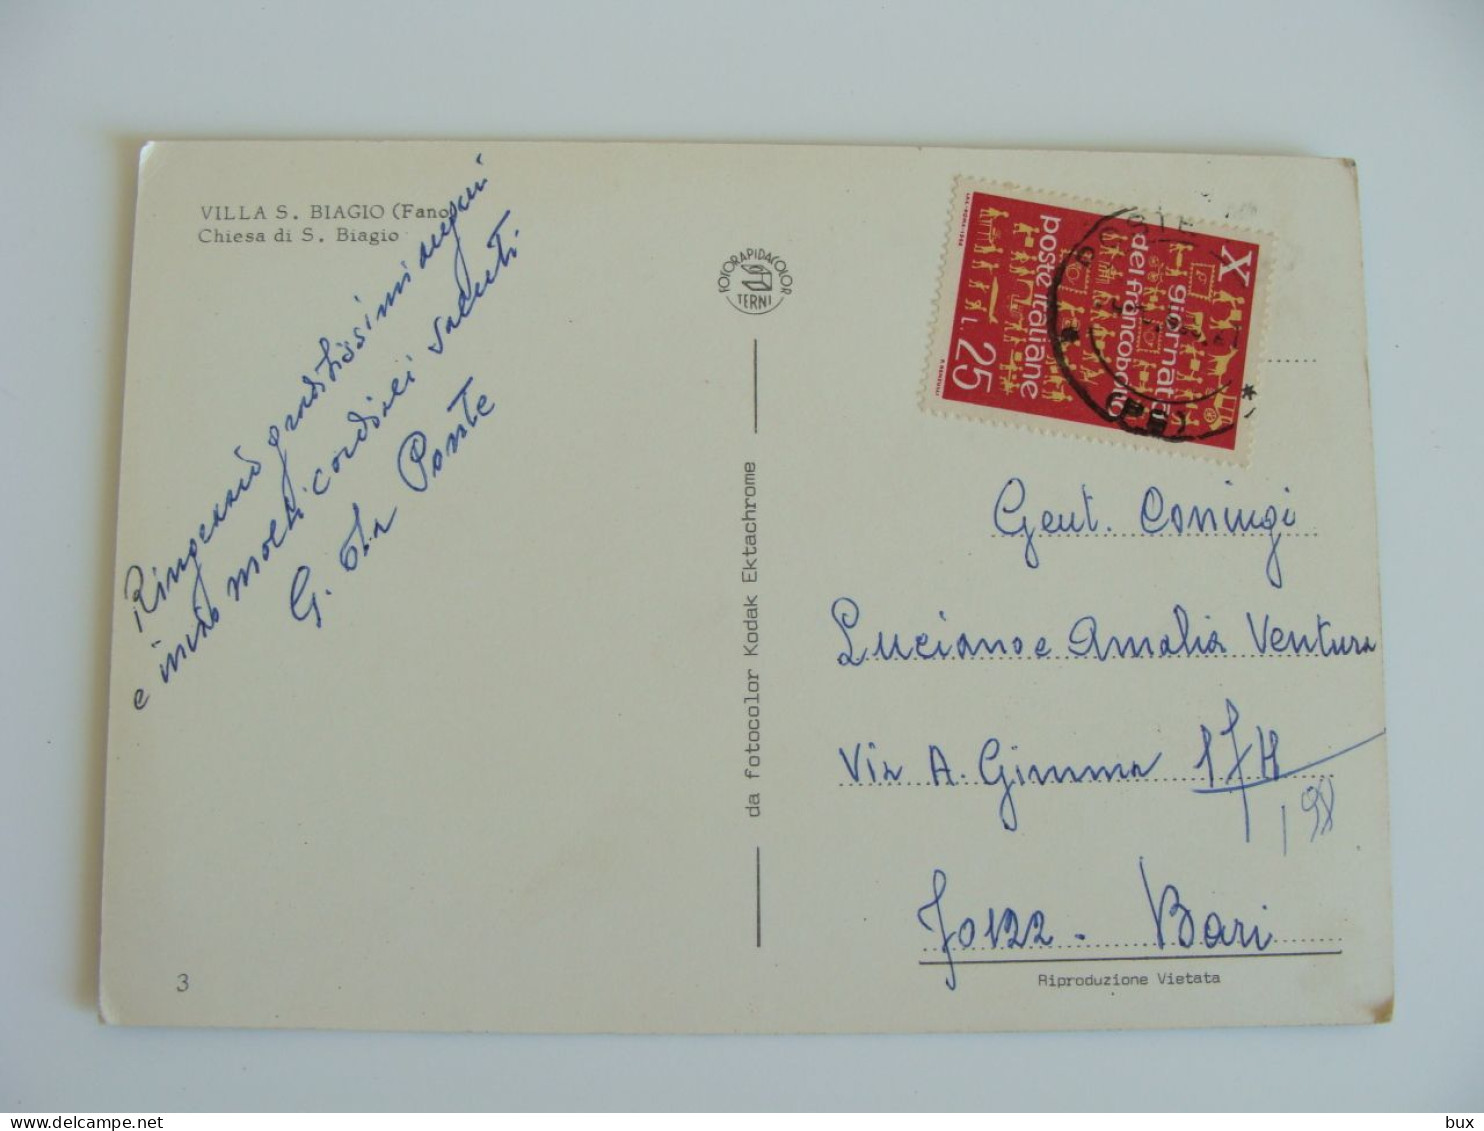 VILLA S. BIAGIO (Fano)
Chiesa di S. Biagio
Ringrazio graditissimi auguri
e invio molti cordiali saluti
G. Da Ponte
3
FOTORAPIDACOLOR
TERNI
da fotocolor Kodak Ektachrome
X giornata
del francobollo
poste italiane
L. 25
POSTE
Gent. Coniugi
Luciano e Amalia Ventura
Via A. Gimma 171
198
70122 - Bari
Riproduzione Vietata
bux